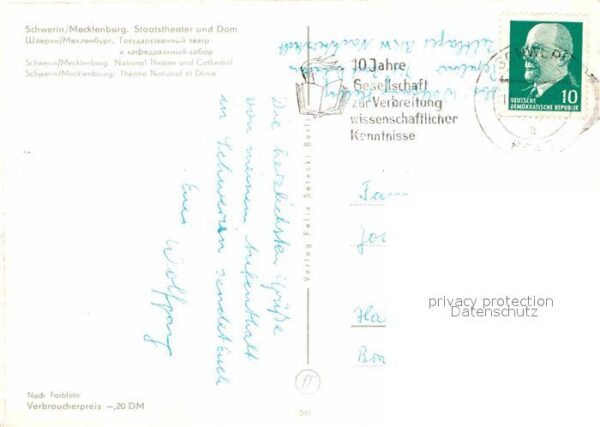 Schwerin/Mecklenburg. Staatstheater und Dom
Шверин/Мекленбург. Государственный театр
и кафедральный собор
Schwerin/Mecklenburg. National Theatre and Cathedral
Schwerin/Mecklenbourg. Théâtre National et Dôme
Die herzlichsten Grüße
von meinem Aufenthalt
in Schwerin sendet Euch
Euer Wolfgang
Nach Farbfoto
Verbraucherpreis –,20 DM
Verlag Felix Setecki Berlin
10 Jahre
Gesellschaft
zur Verbreitung
wissenschaftlicher
Kenntnisse
SCHWERIN
DEUTSCHE
DEMOKRATISCHE REPUBLIK
10
Fam
Ha
privacy protection
Datenschutz